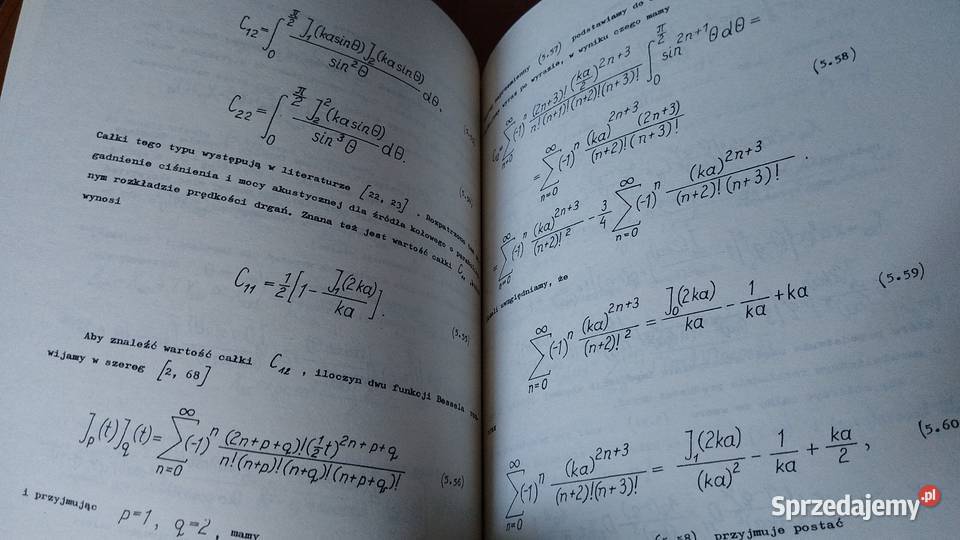 C₁₂ = ∫₀^{π/2} J₁(ka sinθ) J₂(ka sinθ) / sin²θ dθ,
C₂₂ = ∫₀^{π/2} J₂²(ka sinθ) / sin³θ dθ.
Całki tego typu występują w literaturze [22, 23]. Rozpatrzono tam
gadnienie ciśnienia i mocy akustycznej dla źródła kołowego o
nym rozkładzie prędkości drgań. Znana też jest wartość całki C₁₁,
wynosi
C₁₁ = 1/2 [1 - J₁(2ka)/ka].
(5.55)
Aby znaleźć wartość całki C₁₂, iloczyn dwu funkcji Bessela
wijamy w szereg [2, 68]
J_p(t) J_q(t) = ∑_{n=0}^{∞} (-1)ⁿ (2n+p+q)! (½t)^{2n+p+q} / n!(n+p)!(n+q)!(n+p+q)!
(5.56)
i przyjmując p=1, q=2, mamy
(5.57) podstawiamy do
wyraz po wyrazie, w wyniku czego mamy
= ∑_{n=0}^{∞} (-1)ⁿ (2n+3)! (ka/2)^{2n+3} / n!(n+1)!(n+2)!(n+3)! ∫₀^{π/2} sin^{2n+1}θ dθ =
(5.58)
= ∑_{n=0}^{∞} (-1)ⁿ (ka)^{2n+3} (2n+3) / (n+2)!(n+3)!
= ∑_{n=0}^{∞} (-1)ⁿ (ka)^{2n+3} / (n+2)!² - 3/4 ∑_{n=0}^{∞} (-1)ⁿ (ka)^{2n+3} / (n+2)!(n+3)! .
uwzględniamy, że
∑_{n=0}^{∞} (-1)ⁿ (ka)^{2n+3} / (n+2)!² = J₀(2ka)/ka - 1/ka + ka
(5.59)
∑_{n=0}^{∞} (-1)ⁿ (ka)^{2n+3} / (n+2)!(n+3)! = J₁(2ka)/(ka)² - 1/ka + ka/2 ,
(5.60
(5.58) przyjmuje postać
Sprzedajemy.pl